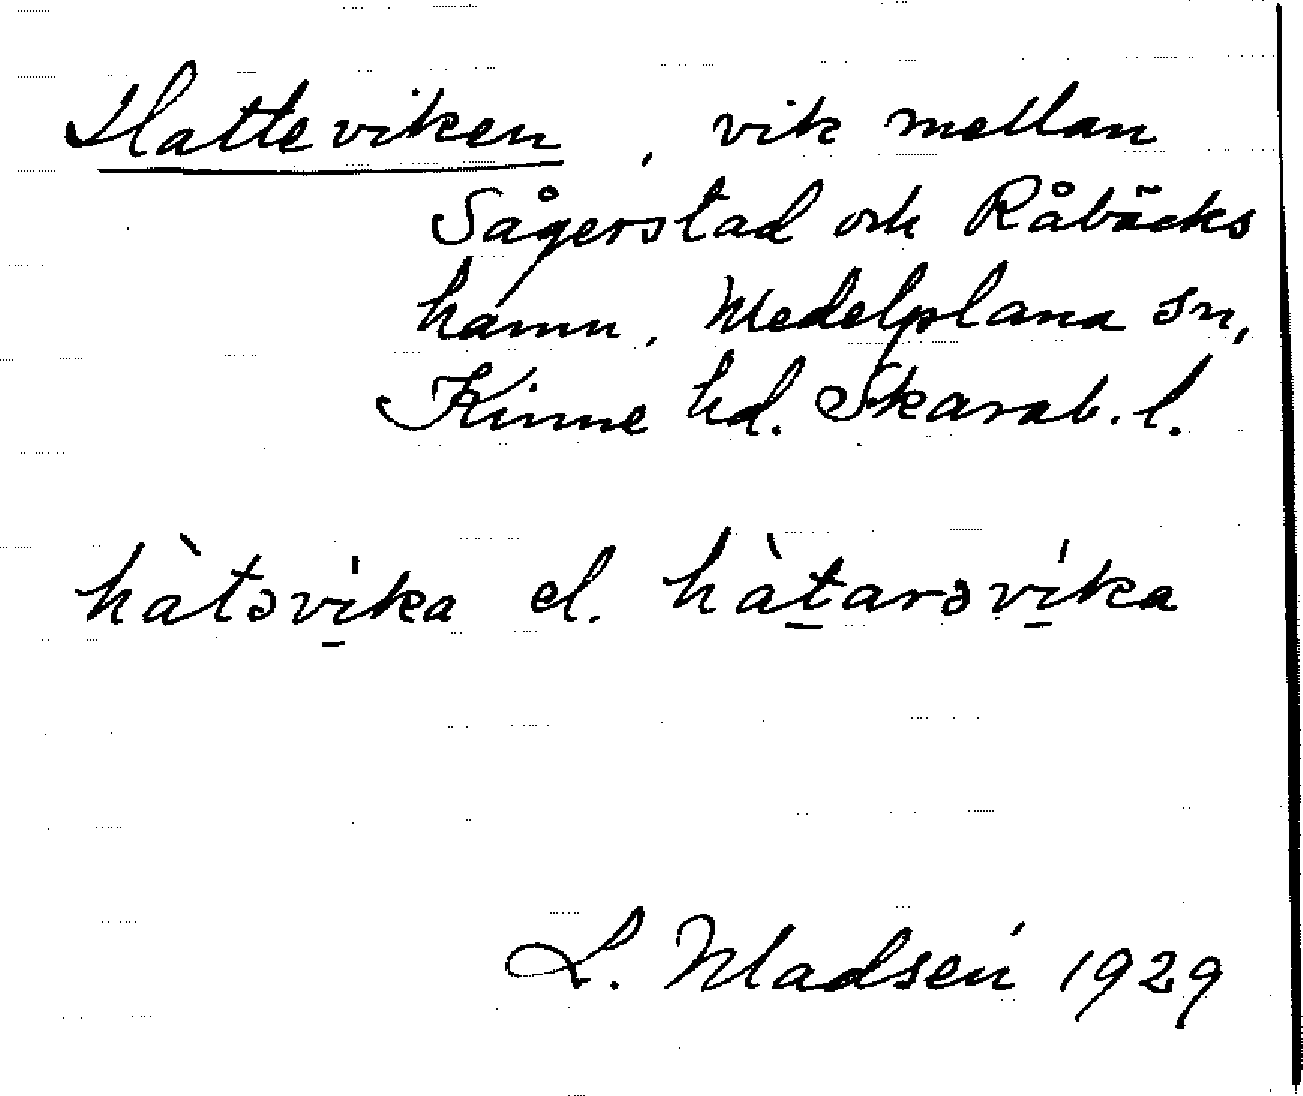 Hatteviken, vik mellan
Sågerstad och Råbäcks
hamn, Medelplana sn,
Kinne hd. Skarab. l.
hàtəvi̠ka el. hàt̠arəvi̠ka
L. Madsén 1929